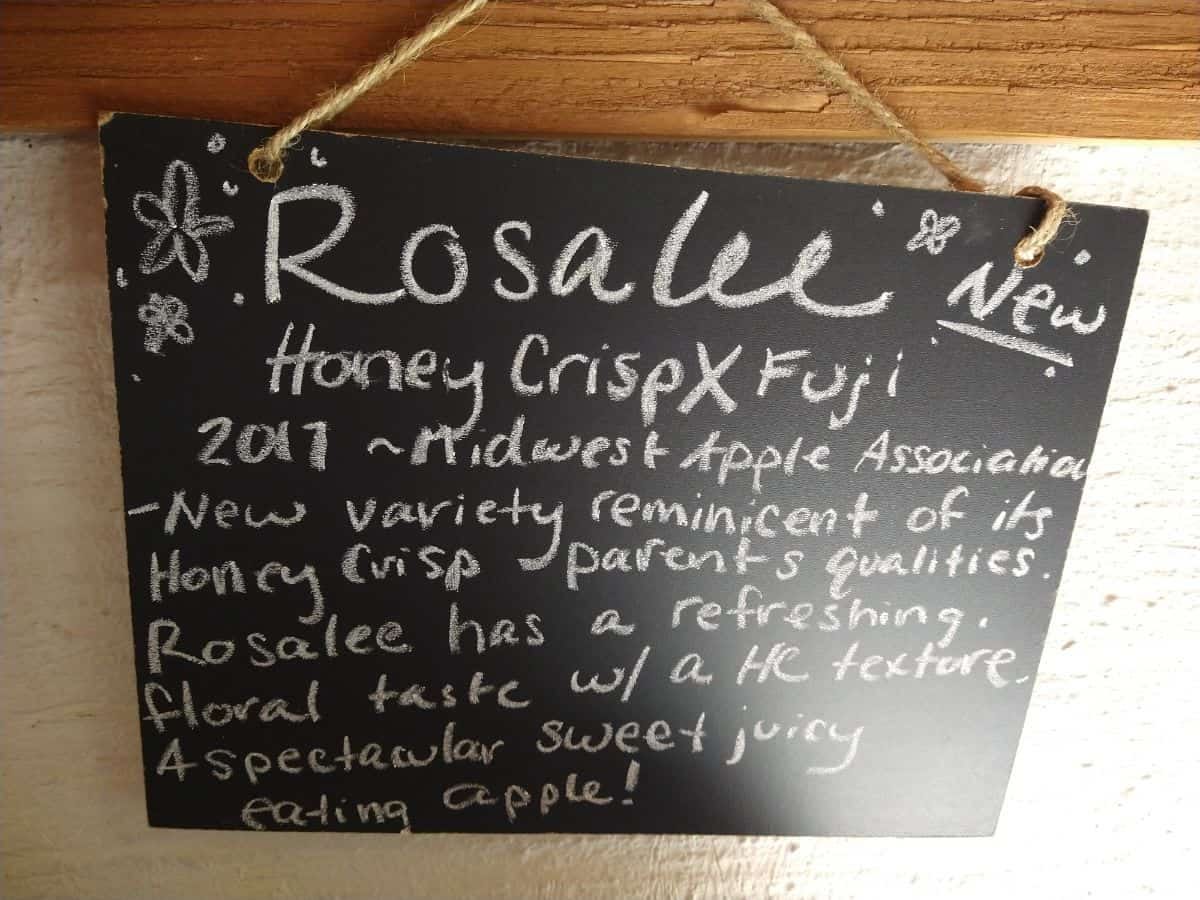 Rosalee
New
Honey Crisp X Fuji
2017 ~Midwest Apple Association
-New variety reminicent of its
Honey Crisp parents qualities.
Rosalee has a refreshing.
floral taste w/ a HC texture.
A spectacular sweet juicy
eating apple!